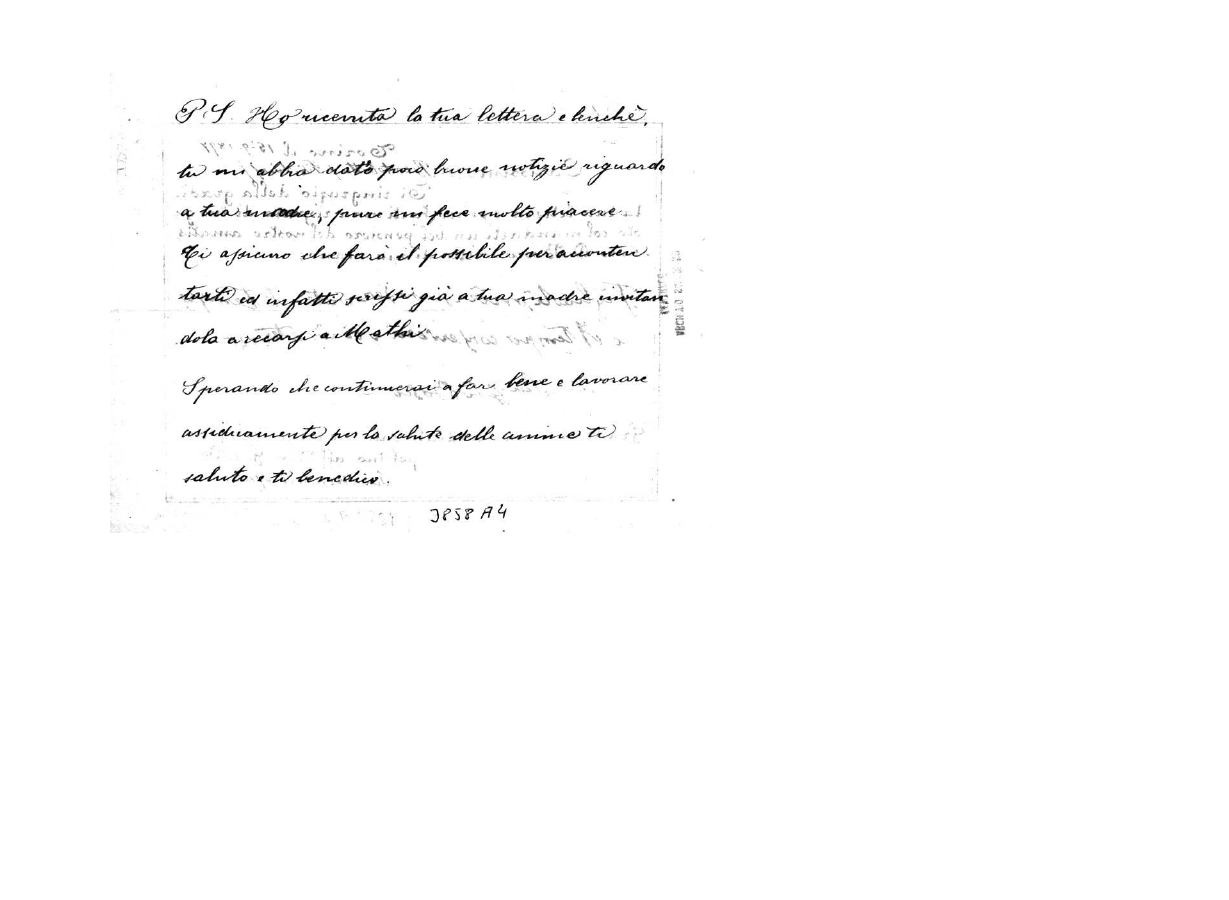 P.S. Ho ricevuta la tua lettera e benchè,
tu mi abbia dato poco buone notizie riguardo
a tua madre, pure mi fece molto piacere.
Ti assicuro che farò il possibile per acconten
tarti ed infatti scrissi già a tua madre invitan
dola a recarsi a Mathi.
Sperando che continuerai a far bene e lavorare
assiduamente per la salute delle anime ti
saluto e ti benedico.
J858 A4